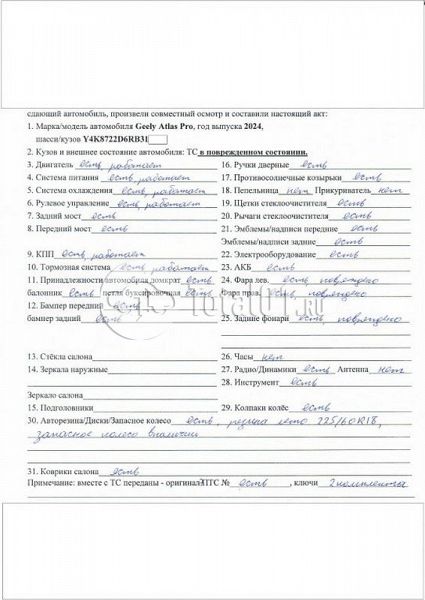 сдающий автомобиль, произвели совместный осмотр и составили настоящий акт:
1. Марка/модель автомобиля Geely Atlas Pro, год выпуска 2024,
шасси/кузов Y4K8722D6RB31
2. Кузов и внешнее состояние автомобиля: ТС в поврежденном состоянии.
3. Двигатель есть, работает
4. Система питания есть, работает
5. Система охлаждения есть, работает
6. Рулевое управление есть, работает
7. Задний мост есть
8. Передний мост есть
9. КПП есть, работает
10. Тормозная система есть, работает
11. Принадлежности автомобиля домкрат есть
балонник есть петля буксировочная есть
12. Бампер передний есть
бампер задний есть
13. Стёкла салона
14. Зеркала наружные
Зеркало салона
15. Подголовники
16. Ручки дверные есть
17. Противосолнечные козырьки есть
18. Пепельница нет Прикуриватель нет
19. Щетки стеклоочистителя есть
20. Рычаги стеклоочистителя есть
21. Эмблемы/надписи передние есть
Эмблемы/надписи задние есть
22. Электрооборудование есть
23. АКБ есть
24. Фара лев. есть повреждено
Фара прав. есть повреждено
25. Задние фонари есть повреждено
26. Часы нет
27. Радио/Динамики есть Антенна нет
28. Инструмент есть
29. Колпаки колёс есть
30. Авторезина/Диски/Запасное колесо есть, резина лето 225/60R18,
запасное колесо в наличии
31. Коврики салона есть
Примечание: вместе с ТС переданы - оригинал ПТС № есть, ключи 2 комплекта